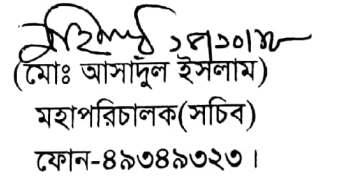 ১৪/১০/১৮
(মোঃ আসাদুল ইসলাম)
মহাপরিচালক(সচিব)
ফোন-৪৯৩৪৯৩২৩।